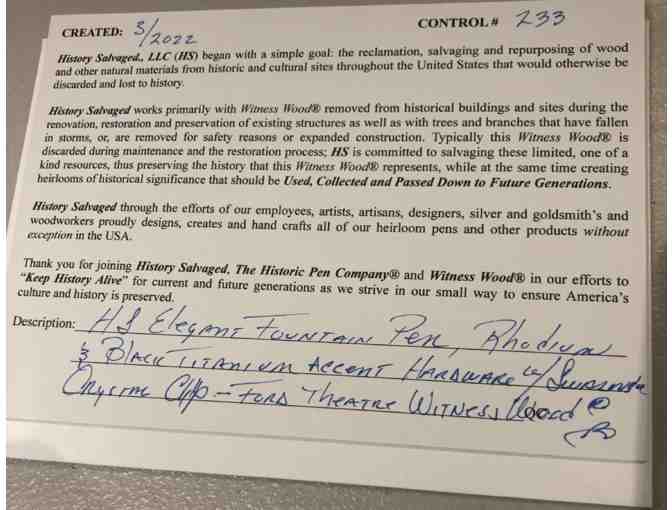 CREATED: 3/2022 CONTROL # 233
History Salvaged., LLC (HS) began with a simple goal: the reclamation, salvaging and repurposing of wood
and other natural materials from historic and cultural sites throughout the United States that would otherwise be
discarded and lost to history.
History Salvaged works primarily with Witness Wood® removed from historical buildings and sites during the
renovation, restoration and preservation of existing structures as well as with trees and branches that have fallen
in storms, or, are removed for safety reasons or expanded construction. Typically this Witness Wood® is
discarded during maintenance and the restoration process; HS is committed to salvaging these limited, one of a
kind resources, thus preserving the history that this Witness Wood® represents, while at the same time creating
heirlooms of historical significance that should be Used, Collected and Passed Down to Future Generations.
History Salvaged through the efforts of our employees, artists, artisans, designers, silver and goldsmith's and
woodworkers proudly designs, creates and hand crafts all of our heirloom pens and other products without
exception in the USA.
Thank you for joining History Salvaged, The Historic Pen Company® and Witness Wood® in our efforts to
"Keep History Alive" for current and future generations as we strive in our small way to ensure America's
culture and history is preserved.
Description: HS Elegant Fountain Pen, Rhodium
& Black Titanium Accent Hardware w/
Crystal Clip - Ford Theatre Witness Wood ®